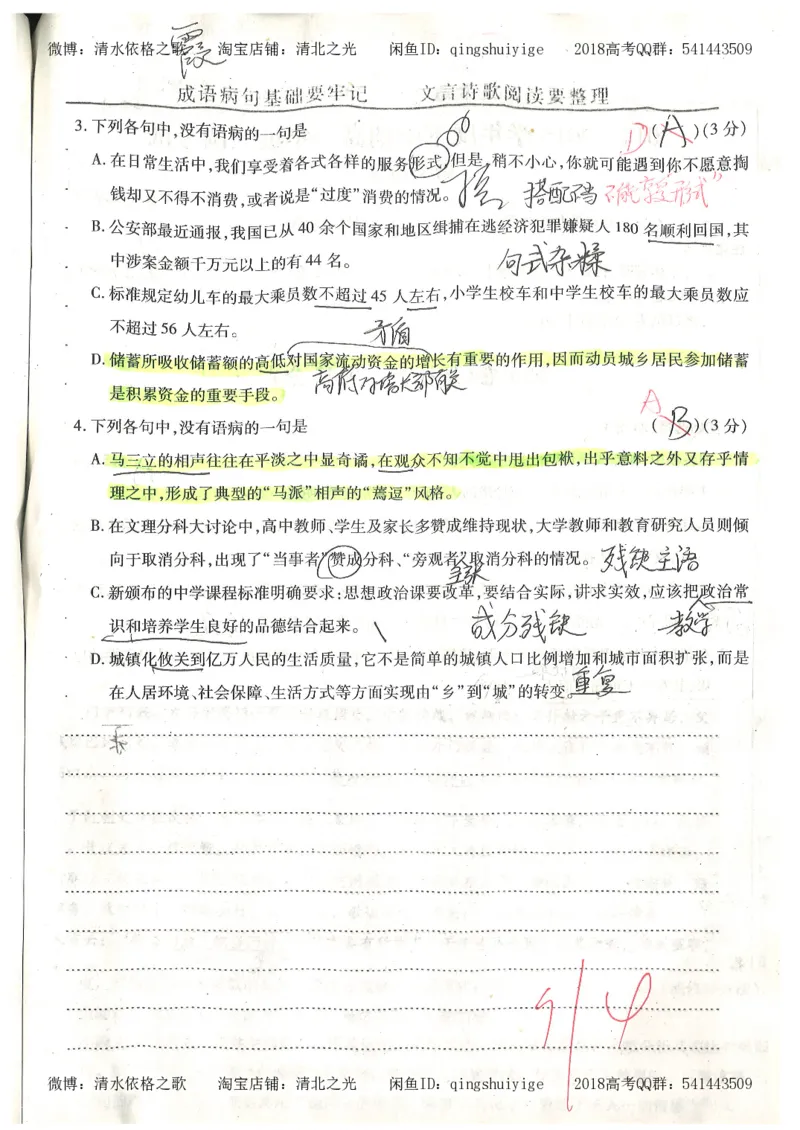 微博：清水依格之歌 淘宝店铺：清北之光 闲鱼ID：qingshuiyige 2018高考QQ群：541443509
霞
成语病句基础要牢记 文言诗歌阅读要整理
3. 下列各句中，没有语病的一句是 D (A)(3分)
A. 在日常生活中，我们享受着各式各样的服务形式，但是，稍不小心，你就可能遇到你不愿意掏
钱却又不得不消费，或者说是“过度”消费的情况。 搭配不当 不能享受“形式”
B. 公安部最近通报，我国已从40余个国家和地区缉捕在逃经济犯罪嫌疑人180名顺利回国，其
中涉案金额千万元以上的有44名。 句式杂糅
C. 标准规定幼儿车的最大乘员数不超过45人左右，小学生校车和中学生校车的最大乘员数应
不超过56人左右。 矛盾
D. 储蓄所吸收储蓄额的高低对国家流动资金的增长有重要的作用，因而动员城乡居民参加储蓄
是积累资金的重要手段。
4. 下列各句中，没有语病的一句是 A (B)(3分)
A. 马三立的相声往往在平淡之中显奇谲，在观众不知不觉中甩出包袱，出乎意料之外又存乎情
理之中，形成了典型的“马派”相声的“蔫逗”风格。
B. 在文理分科大讨论中，高中教师、学生及家长多赞成维持现状，大学教师和教育研究人员则倾
向于取消分科，出现了“当事者”赞成分科、“旁观者”取消分科的情况。 残缺主语
C. 新颁布的中学课程标准明确要求：思想政治课要改革，要结合实际，讲求实效，应该把政治常
识和培养学生良好的品德结合起来。 成分残缺 教学
D. 城镇化攸关到亿万人民的生活质量，它不是简单的城镇人口比例增加和城市面积扩张，而是
在人居环境、社会保障、生活方式等方面实现由“乡”到“城”的转变。 重复
微博：清水依格之歌 淘宝店铺：清北之光 闲鱼ID：qingshuiyige 2018高考QQ群：541443509